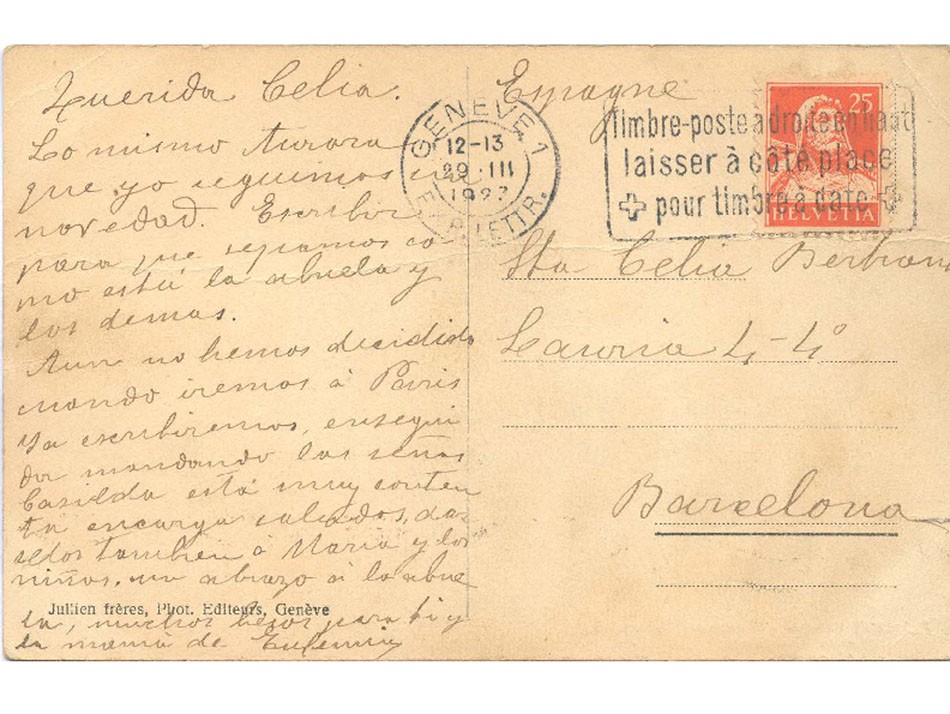 Querida Celia.
Lo mismo Aurora
que yo seguimos sin
novedad. Escribir
para que sepamos co
mo está la abuela y
los demas.
Aun no hemos decidido
cuando iremos á Paris
Ya escribiremos, ensegui
da mandando las señas
Casilda está muy conten
ta encarga saludos, da
selos tambien á Maria y los
niños. un abrazo á la abue
la, muchos besos para ti y
la mamá de Eufemia
Jullien frères, Phot. Editeurs, Genève
GENÈVE 1
12-13
29.III
1927
LETTR.
Espagne
25
HELVETIA
Timbre-poste à droite en haut
laisser à côté place
pour timbre à date
Sta Celia Bertran
Lauria 4-4º
Barcelona